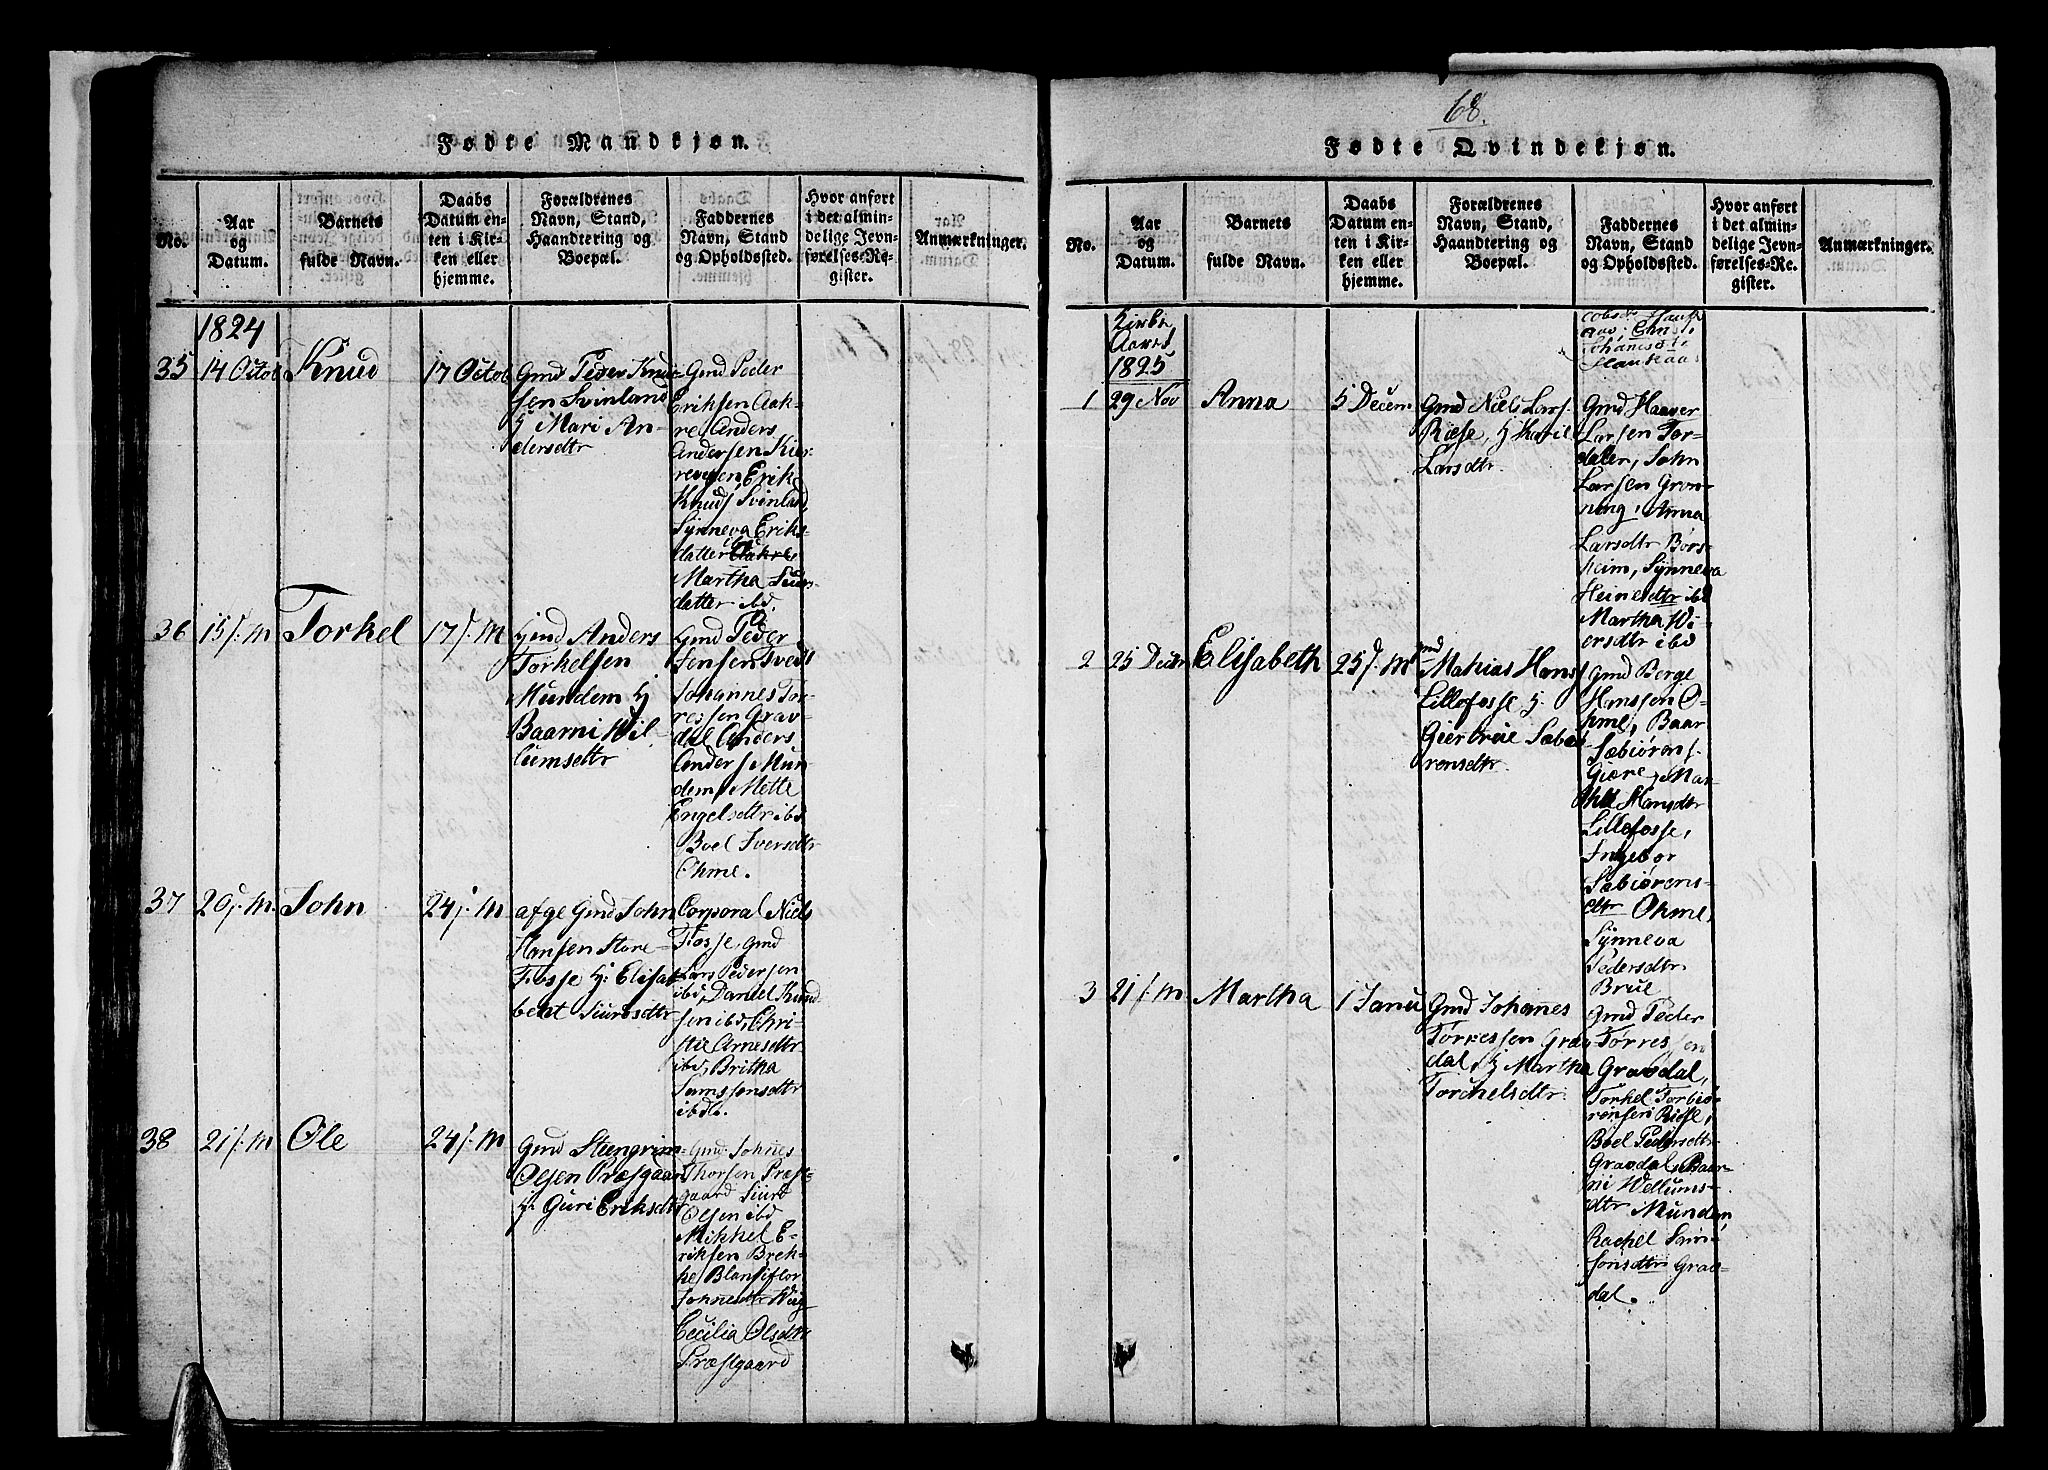 Fødte Mandkjøn.
No.
Aar og Datum.
Barnets fulde Navn.
Daabs Datum enten i Kirken eller hjemme.
Forældrenes Navn, Stand, Haandtering og Boepæl.
Faddernes Navn, Stand og Opholdssted.
Hvor anført i det almindelige Jevnførelses-Register.
Anmærkninger.
1824
35
14 Octob
Knud
17 Octob
Gmd Peder Knud-
sen Svinland
Hj Mari An-
dersdtr
Gmd Peder
Eriksen Aak-
re, Anders
Andersen
Erik
Knuds Svinland,
Synneva Eriks-
datter ibd
Martha
datter ibd.
36
15 s. M
Torkel
17 s. M
Gmd Anders
Torkelsen
Mundem Hj
Baarni Wil-
lumsdtr
Gmd Peder
Jensen Tvedt
Johannes Tor-
ressen Grav-
dal Anders
Anders s. Mun-
dem, Mette
Engelsdtr ibd
Boel Iversdtr
Ohme.
37
20 s. M.
John
24 s. M
afge Gmd John
Hansen Store-
Fosse Hj. Elisab-
beht Siursdtr
Corporal Niels
Fosse, Gmd
Lars Pedersen
ibd, Daniel Knud
sen ibd, Chri-
stie Arnesdtr
ibd, Britha
Samsonsdtr
ibd.
38
21 s. M
Ole
24 s. M
Gmd Steengrim
Olsen Præstgaar
Hj. Guri Eriksdtr
Gmd Johnes
Thorsen Præst-
gaard Siurd
Olsen ibd
Mikkel E-
riksen Brek-
ke, Blansiflor
Johnesdtr
Cecilia Olsdtr
Præstgaard
68.
Fødte Qvindekjøn.
No.
Aar og Datum.
Barnets fulde Navn.
Daabs Datum enten i Kirken eller hjemme.
Forældrenes Navn, Stand, Haandtering og Boepæl.
Faddernes Navn, Stand og Opholdssted.
Hvor anført i det almindelige Jevnførelses-Register.
Anmærkninger.
Kirke
Aaret
1825
1
29 Nov
Anna
5 Decem
Gmd Niels Lars s.
Riese, Hj Karie
Larsdtr.
Gmd Haaver
Larsen Tor-
daler, John
Larsen Gron-
ning, Anna
Larsdtr Børs-
heim, Synneva
Heinesdtr ibd
Martha Wi-
ersdtr ibd
2
25 Decbr
Elisabeth
25 s. M
Gmd Mathias Hans s
Lillefosse Hj.
Giertrue Sæbiø-
rensdtr.
Gmd Berge
Hanssen O-
hme, Baar
Sæbiørens s.
Giere, Mar-
the Hansdtr
Lillefosse,
Ingebor
Sæbiørens-
dtr Ohme,
Synneva
Pedersdtr.
Brue
3
21 s. M
Martha
1 Janu
Gmd Johannes
Torressen Grav-
dal, Hj Martha
Torchelsdtr.
Gmd Peder
Torressen
Gravdal,
Torkel Torbiø-
rensen Riese,
Boel Pedersdtr
Gravdal, Baar-
ni Wellums-
dtr Mundem,
Rachel Simi-
sonsdtr Grav-
dal.